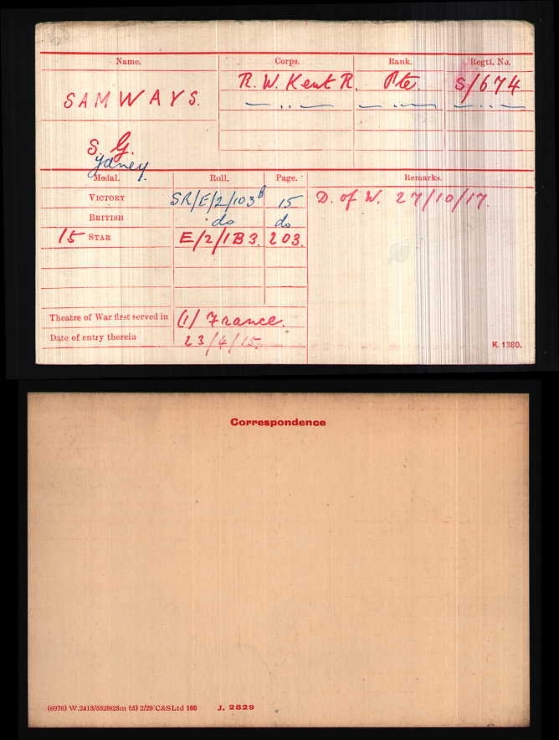 Name. Corps. Rank. Regtl. No.
SAMWAYS. R. W. Kent R. Pte. S/674
— „ — — „ — — „ —
S. G.
ydney
Medal. Roll. Page. Remarks.
VICTORY SR/E/2/103B 15 D. of W. 27/10/17.
BRITISH do do
15 STAR E/2/1B3. 203.
Theatre of War first served in (1) France.
Date of entry therein 23/4/15.
K. 1380.
Correspondence
J. 2829